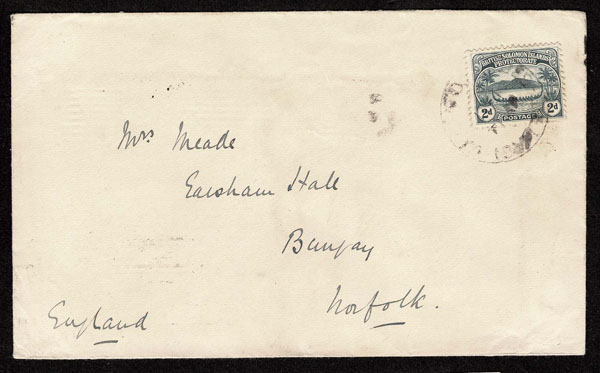 BRITISH SOLOMON ISLANDS
PROTECTORATE
2d 2d
POSTAGE
Mrs Meade
Earsham Hall
Bungay
Norfolk.
England